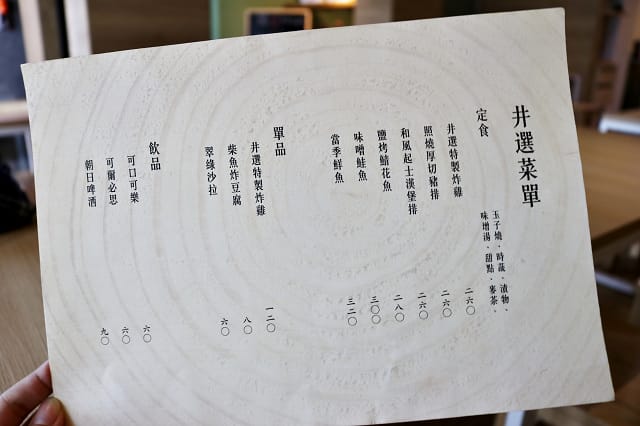 井選菜單
定食
玉子燒·時蔬·漬物、
味增湯·甜點·麥茶、
井選特製炸雞 二六〇
照燒厚切豬排 二六〇
和風起士漢堡排 二六〇
鹽烤鯖花魚 二八〇
味噌鮭魚 三〇〇
當季鮮魚 三二〇
單品
井選特製炸雞 一二〇
柴魚炸豆腐 八〇
翠綠沙拉 六〇
飲品
可口可樂 六〇
可爾必思 六〇
朝日啤酒 九〇